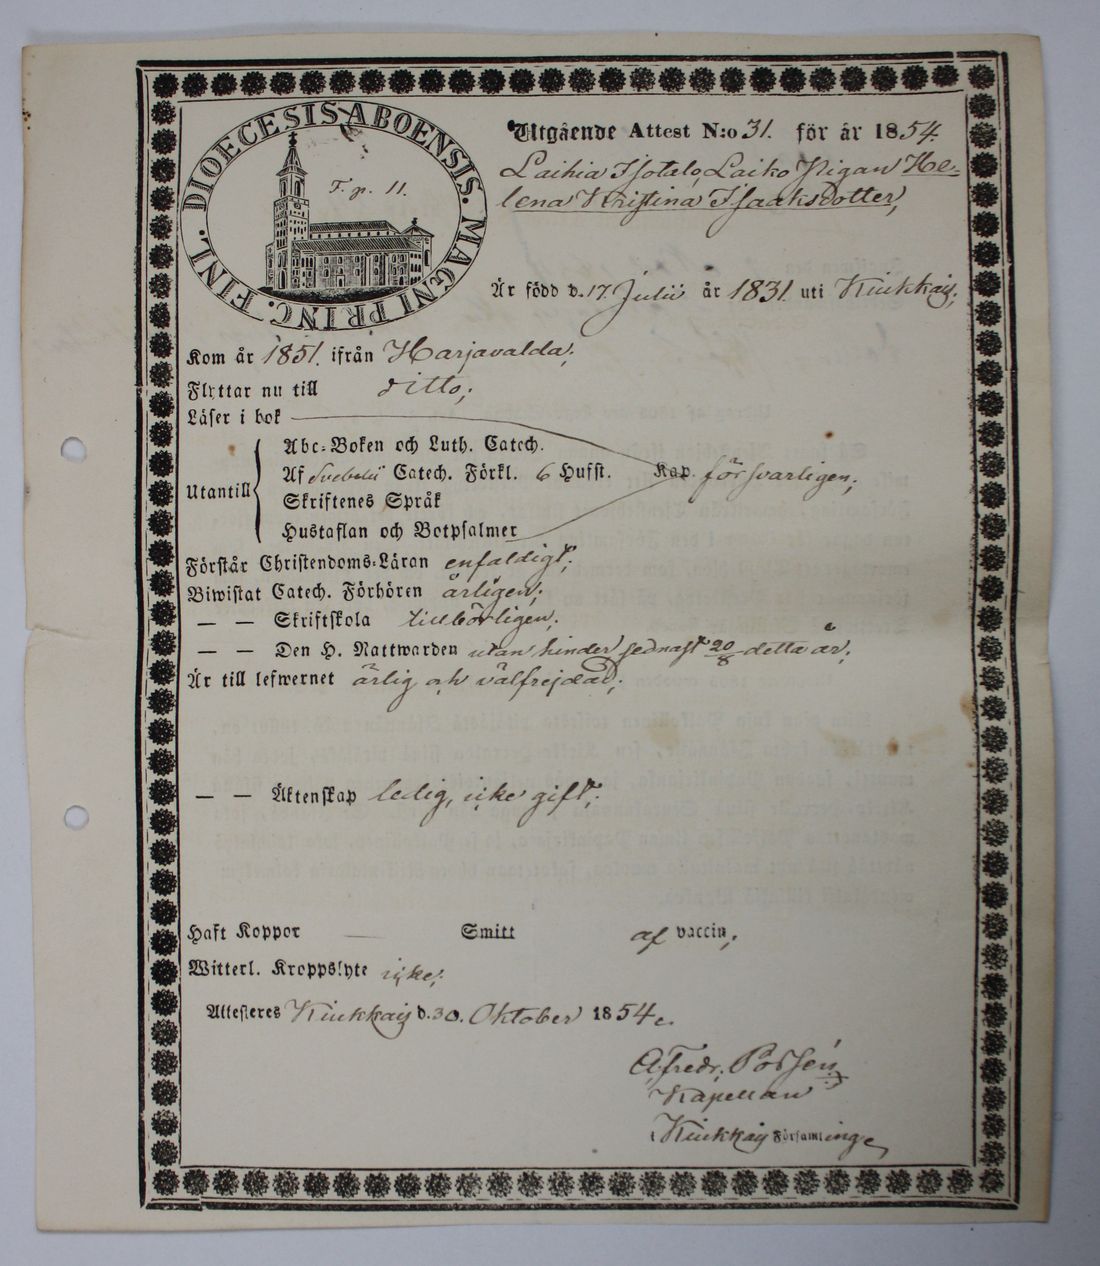 DIOECESIS ABOENSIS. MAGNI PRINC. FINL.
F. p. 11.
Utgående Attest N:o 31. för år 1854.
Laihia Isotalo, Laiko Pigan He-
lena Kristina Isaaksdotter,
Är född d. 17 Julii år 1831 uti Kiukkais;
Kom år 1851. ifrån Harjavalda;
Flyttar nu till ditto;
Läser i bok
Abc-Boken och Luth. Catech.
Utantill Af Svebelii Catech. Förkl. 6 Hufst. Kap. försvarligen;
Skriftenes Språk
Hustaflan och Botpsalmer
Förstår Christendoms-Läran enfaldigt;
Biwistat Catech. Förhören årligen;
— — Skriftskola tillbörligen;
— — Den H. Nattwarden utan hinder sednast 20/8 detta år;
Är till lefwernet ärlig och välfrejdad;
— — Äktenskap ledig, icke gift;
Haft Koppor — Smitt af vaccin;
Witterl. Kroppslyte icke;
Attesteras Kiukkais d. 30. Oktober 1854.
Fredr. Possén
Kapellan
i Kiukkais Församling